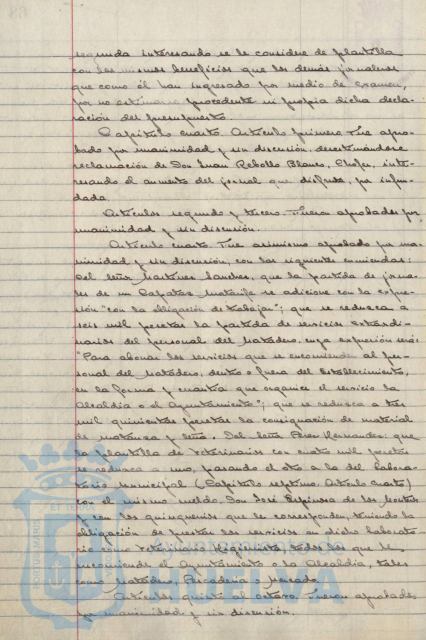 segunda interesando se le considere de plantilla
con los mismos beneficios que los demás jornaleros
que como él han ingresado por medio de examen,
por no estimarse procedente ni propia dicha decla-
ración del presupuesto.
Capítulo cuarto. Artículo primero. Fue apro-
bado por unanimidad y sin discusión, desestimándose
reclamación de Don Juan Rebollo Blanco, Chofer, inte-
resando el aumento del jornal que disfruta, por infun-
dada.
Artículos segundo y tercero. Fueron aprobados por
unanimidad y sin discusión.
Artículo cuarto. Fue asimismo aprobado por una-
nimidad y sin discusión, con las siguientes enmiendas:
Del Señor Martínez Sanchez, que la partida de jorna-
les de un Capataz Matarife se adicione con la expre-
sión "con la obligación de trabajar"; que se reduzca a
seis mil pesetas la partida de servicios extraordi-
narios del personal del Matadero, cuya expresión será:
"Para abonar los servicios que se encomienden al per-
sonal del Matadero, dentro o fuera del Establecimiento,
en la forma y cuantía que organice el servicio la
Alcaldía o el Ayuntamiento"; que se reduzca a tres
mil quinientas pesetas la consignación de material
de matanza y leña. Del Señor Perez Hernandez: que
la plantilla de Veterinarios con cuatro mil pesetas
se reduzca a uno, pasando el otro a la del Labora-
torio Municipal (Capítulo septimo. Artículo cuarto)
con el mismo sueldo. Don José Espinosa de los Monteros
y con los quinquenios que le correspondan, teniendo la
obligación de prestar los servicios en dicho Laborato-
rio como Veterinario Higienista, todos los que le
encomiende el Ayuntamiento o la Alcaldía, tales
como Matadero, Pescadería o Mercado.
Artículos quinto al octavo. Fueron aprobados
por unanimidad y sin discusión.